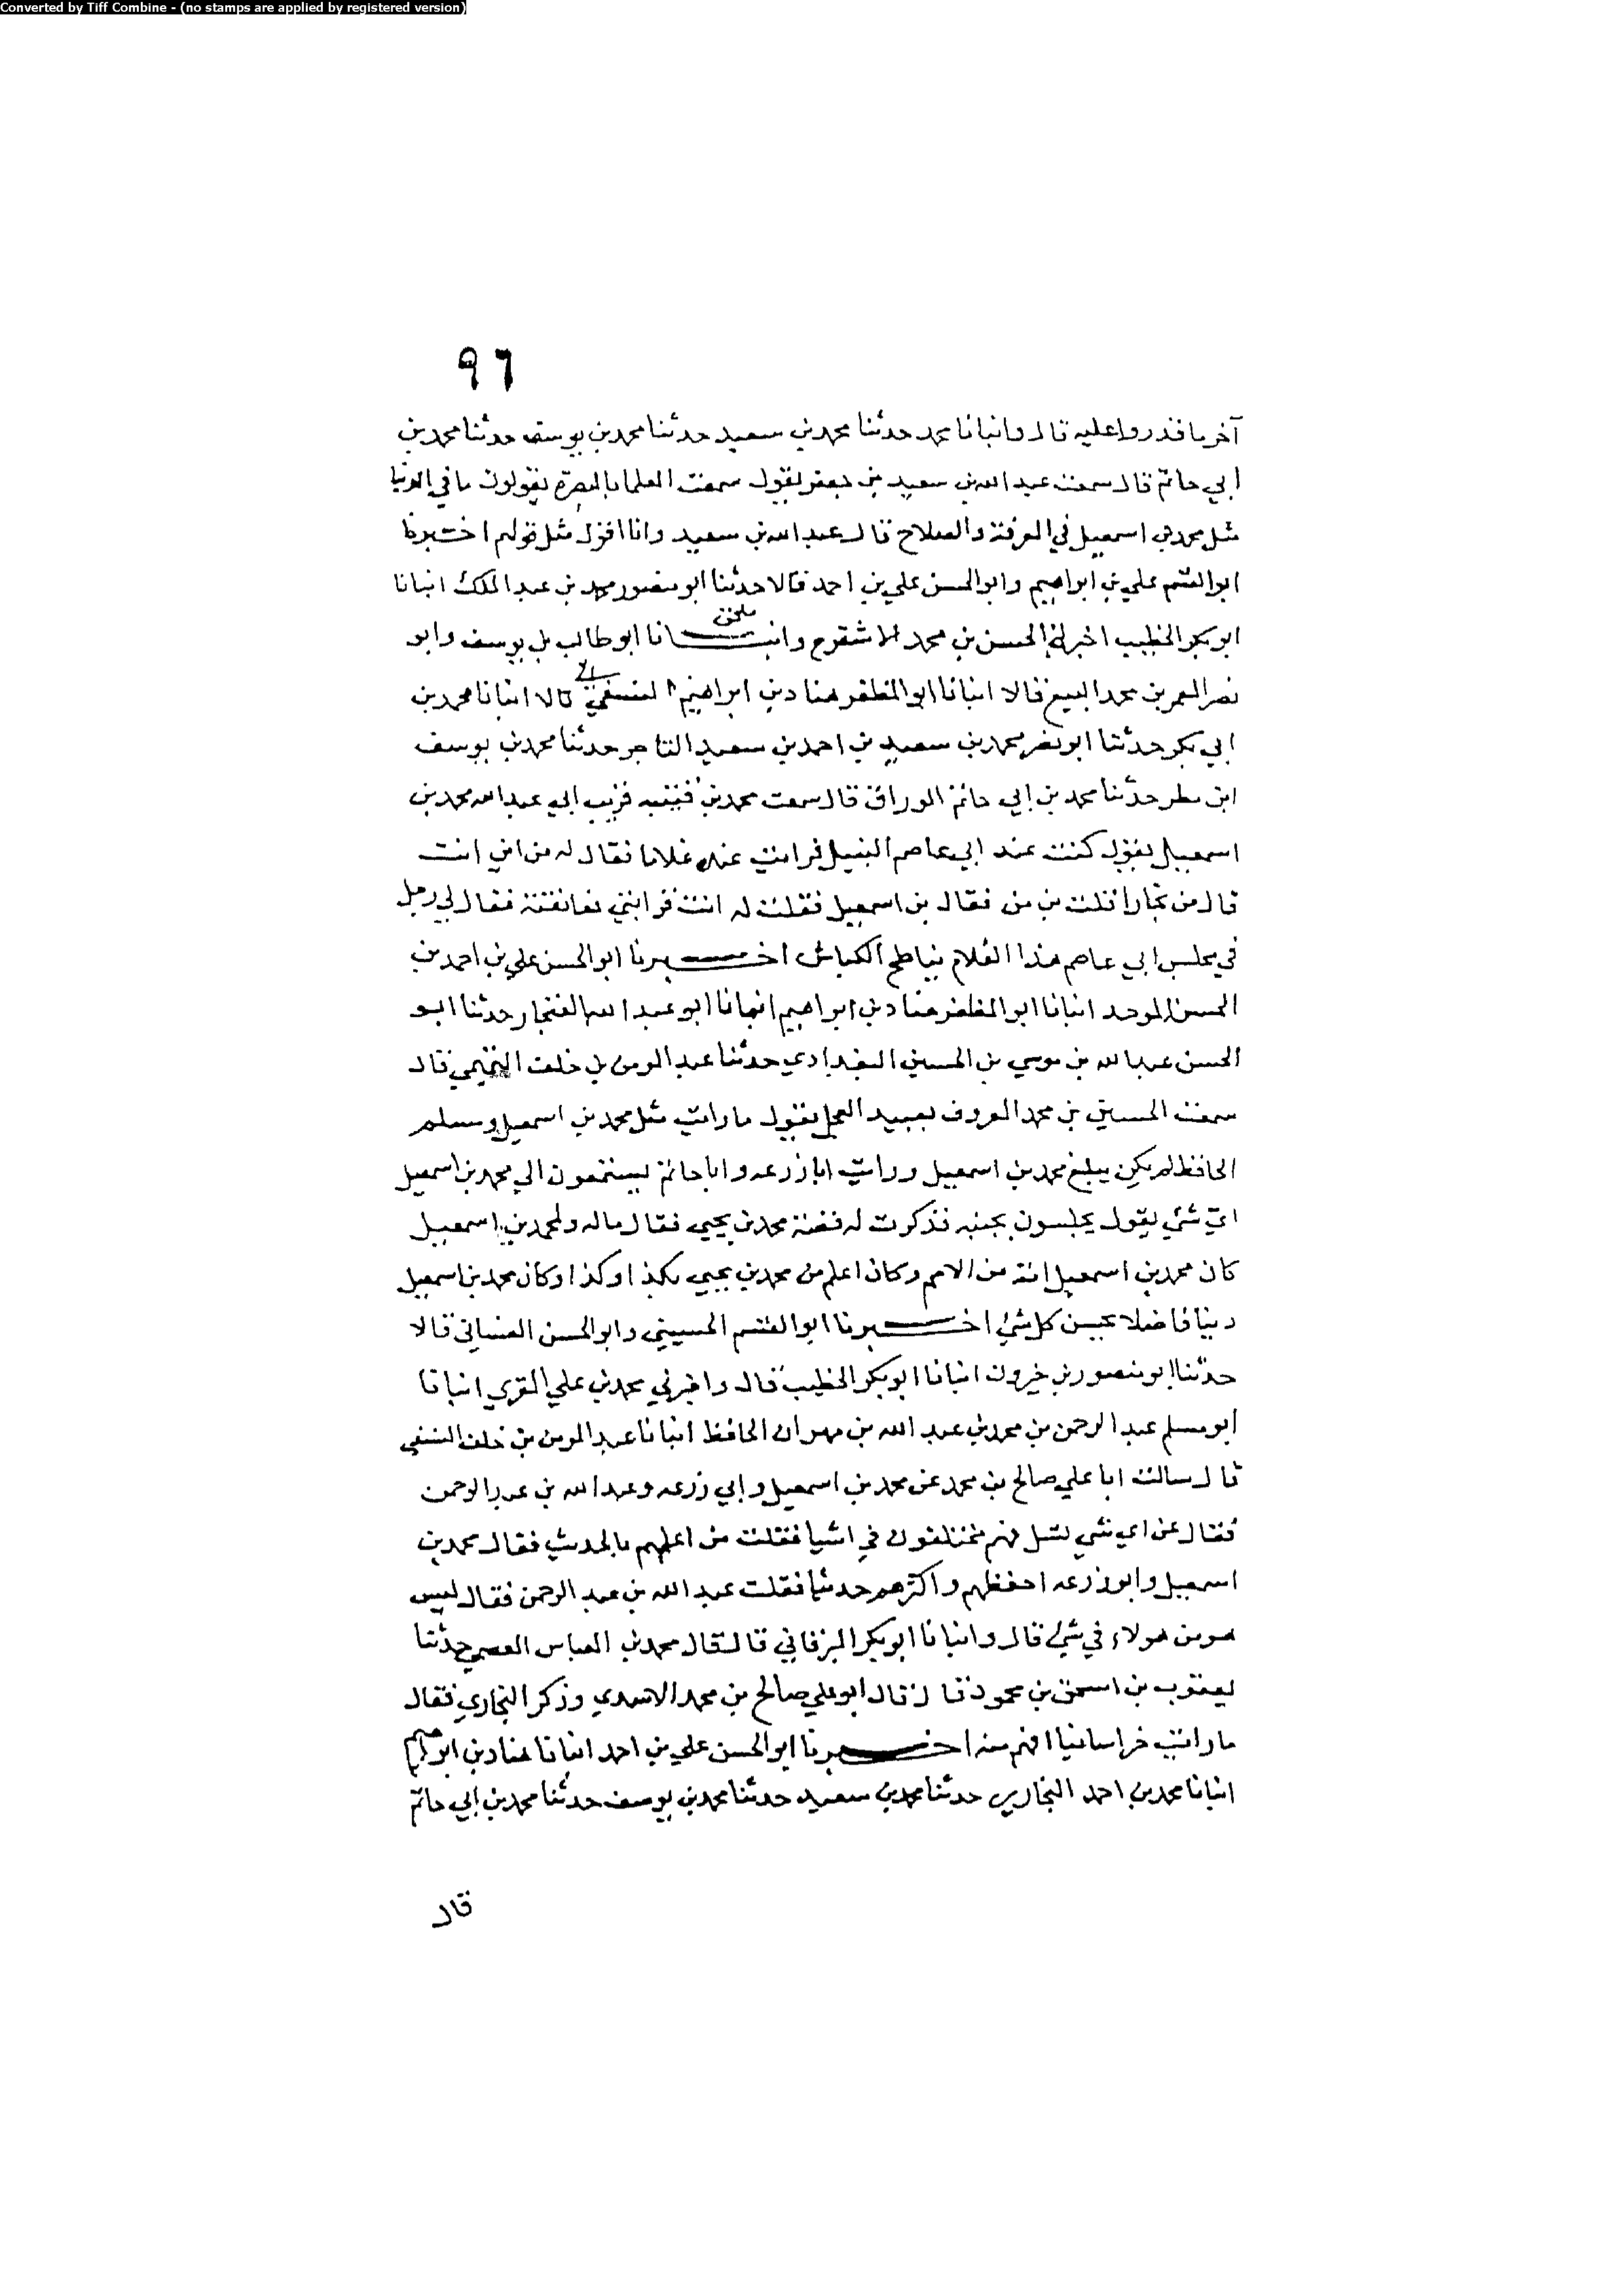 Converted by Tiff Combine - (no stamps are applied by registered version)
٩٦
آخر ما قدروا عليه قال وانبانا محمد حدثنا محمد بن سعيد حدثنا محمد بن يوسف حدثنا محمد بن
ابي حاتم قال سمعت عبد الله بن سعيد بن جعفر يقول سمعت العلما بالبصرة يقولون ما في الدنيا
مثل محمد بن اسمعيل في المعرفة والصلاح قال عبد الله بن سعيد وانا اقول مثل قولهم اخبرنا
ابو القسم علي بن ابراهيم وابو الحسن علي بن احمد قالا حدثنا ابو منصور محمد بن عبد الملك انبانا
ابو بكر الخطيب اخبرني الحسن بن محمد الاشقر ح وانبانا ابو طالب بن يوسف وابو
ملحق
نصر المعمر بن محمد البيع قالا انبانا ابو المظفر هناد بن ابراهيم النسفي قالا انبانا محمد بن
ابي بكر حدثنا ابو نصر محمد بن سعيد بن احمد بن سعيد التاجر حدثنا محمد بن يوسف
ابن مطر حدثنا محمد بن ابي حاتم الوراق قال سمعت محمد بن قتيبه قريب ابي عبد الله محمد بن
اسمعيل يقول كنت عند ابي عاصم النبيل فرايت عنده غلاما فقال له من اين انت
قال من بخارا قلت بن من فقال بن اسمعيل فقلت له انت قرابتي فعانقته فقال لي رجل
في مجلس ابي عاصم هذا الغلام يناطح الكباش اخبرنا ابو الحسن علي بن احمد بن
الحسن الموحد انبانا ابو المظفر هناد بن ابراهيم انبانا ابو عبد الله الغنجار حدثنا ابو
الحسن عبد الله بن موسي بن الحسين البغدادي حدثنا عبد المومن بن خلف التميمي قال
سمعت الحسين بن محمد المعروف بعبيد العجل يقول ما رايت مثل محمد بن اسمعيل ومسلم
الحافظ لم يكن يبلغ محمد بن اسمعيل ورايت ابا زرعه وابا حاتم يستمعون الي محمد بن اسمعيل
اي شي يقول يجلسون بجنبه فذكرت له قصة محمد بن يحيي فقال ماله ولمحمد بن اسمعيل
كان محمد بن اسمعيل امة من الامم وكان اعلم من محمد بن يحيي بكذا وكذا وكان محمد بن اسمعيل
دينا فاضلا يحسن كل شي اخبرنا ابو القسم الحسيني وابو الحسن الغساني قالا
حدثنا ابو منصور بن خيرون انبانا ابو بكر الخطيب قال واخبرني محمد بن علي المقري انبانا
ابو مسلم عبد الرحمن بن محمد بن عبد الله بن مهران الحافظ انبانا عبد المومن بن خلف النسفي
قال سالت ابا علي صالح بن محمد عن محمد بن اسمعيل وابي زرعه وعبد الله بن عبد الرحمن
فقال عن اي شي تسل فهم مختلفون في اشيا فقلت من اعلمهم بالحديث فقال محمد بن
اسمعيل وابو زرعه احفظهم واكثرهم حديثا فقلت عبد الله بن عبد الرحمن فقال ليس
هو من هولاء في شي قال وانبانا ابو بكر البرقاني قال قال محمد بن العباس العصمي حدثنا
يعقوب بن اسحق بن محمود قال قال ابو علي صالح بن محمد الاسدي وذكر البخاري فقال
ما رايت خراسانيا افهم منه اخبرنا ابو الحسن علي بن احمد انبانا هناد بن ابراهيم
انبانا محمد بن احمد البخاري حدثنا محمد بن سعيد حدثنا محمد بن يوسف حدثنا محمد بن ابي حاتم
قال